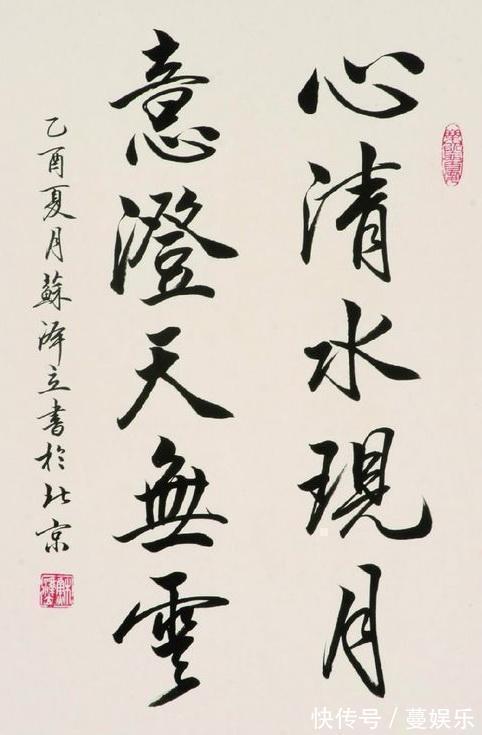 心清水現月
意澄天無雲
乙酉夏月蘇澤立書於北京
快传号／蔓娱乐